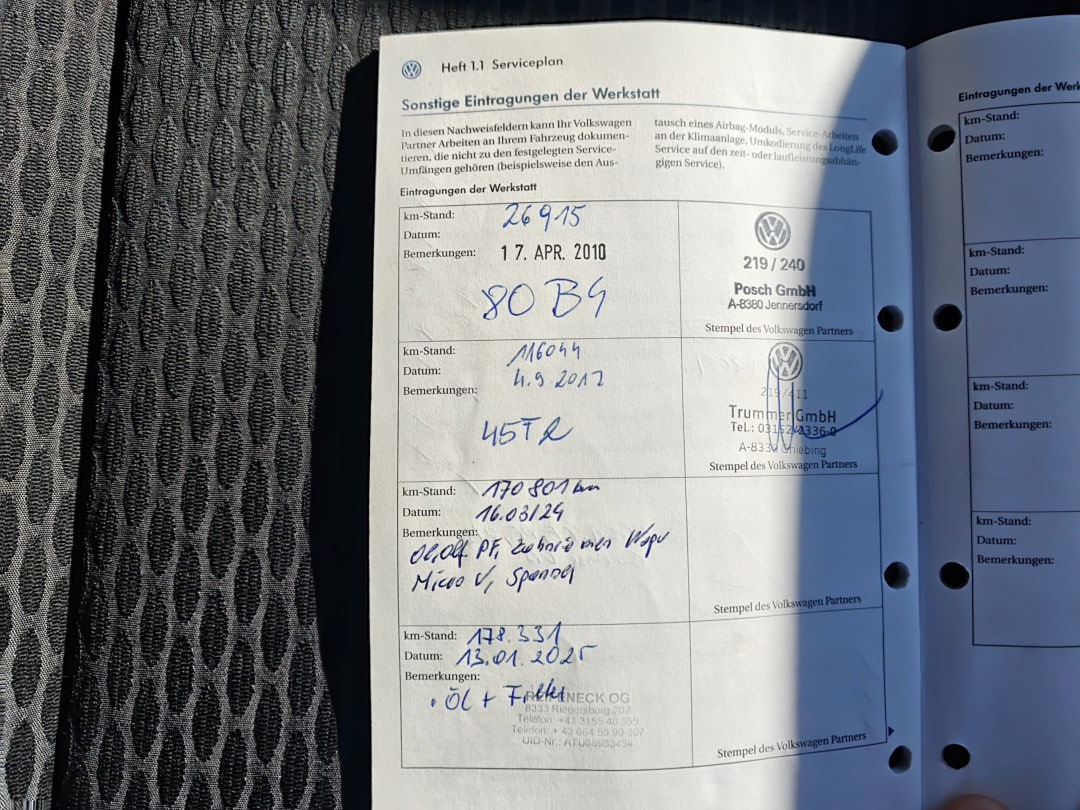 Heft 1.1 Serviceplan
Sonstige Eintragungen der Werkstatt
In diesen Nachweisfeldern kann Ihr Volkswagen
Partner Arbeiten an Ihrem Fahrzeug dokumen-
tieren, die nicht zu den festgelegten Service-
Umfängen gehören (beispielsweise den Aus-
tausch eines Airbag-Moduls, Service-Arbeiten
an der Klimaanlage, Umkodierung des LongLife
Service auf den zeit- oder laufleistungsabhän-
gigen Service).
Eintragungen der Werkstatt
km-Stand: 26915
Datum:
Bemerkungen: 17. APR. 2010
80 B4
219 / 240
Posch GmbH
A-8380 Jennersdorf
Stempel des Volkswagen Partners
km-Stand: 116044
Datum: 4.9 2017
Bemerkungen:
45T
219/411
Trummer GmbH
Tel.: 03152/2336-0
A-833
Stempel des Volkswagen Partners
km-Stand: 170801 km
Datum: 16.03/24
Bemerkungen:
PF, Zahnriemen Wapu
Micro V, Spanner
Stempel des Volkswagen Partners
km-Stand: 178.331
Datum: 13.01.2025
Bemerkungen:
• ÖL + Filter
NECK OG
8333 Riegersburg 202
Telefon: +43 3155 40 555
Telefon: + 43 664 50 90
UID-Nr.:
Stempel des Volkswagen Partners
Eintragungen der Werk
km-Stand:
Datum:
Bemerkungen:
km-Stand:
Datum:
Bemerkungen:
km-Stand:
Datum:
Bemerkungen:
km-Stand:
Datum:
Bemerkungen: